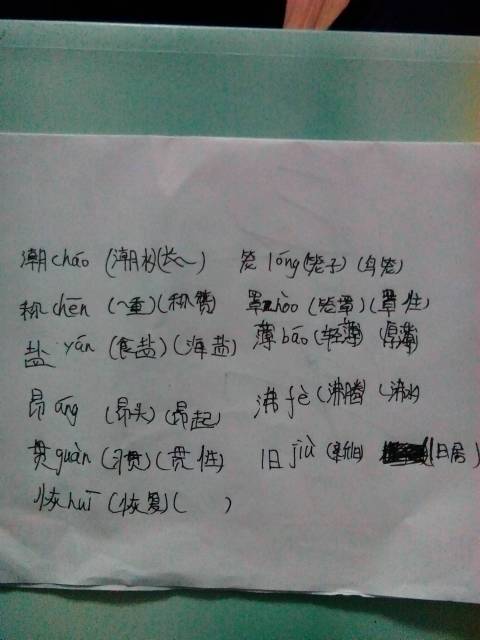 潮cháo (潮水)(长～) 笼lóng(笼子)(鸟笼)
称chēn (～重)(称赞) 罩zhào(笼罩)(罩住)
盐 yán (食盐)(海盐) 薄báo(轻薄)(厚薄)
昂áng (昂头)(昂起) 沸fè(沸腾)(沸水)
贯guàn (习贯)(贯性) 旧jiù(新旧)(旧居)
恢huī(恢复)( )